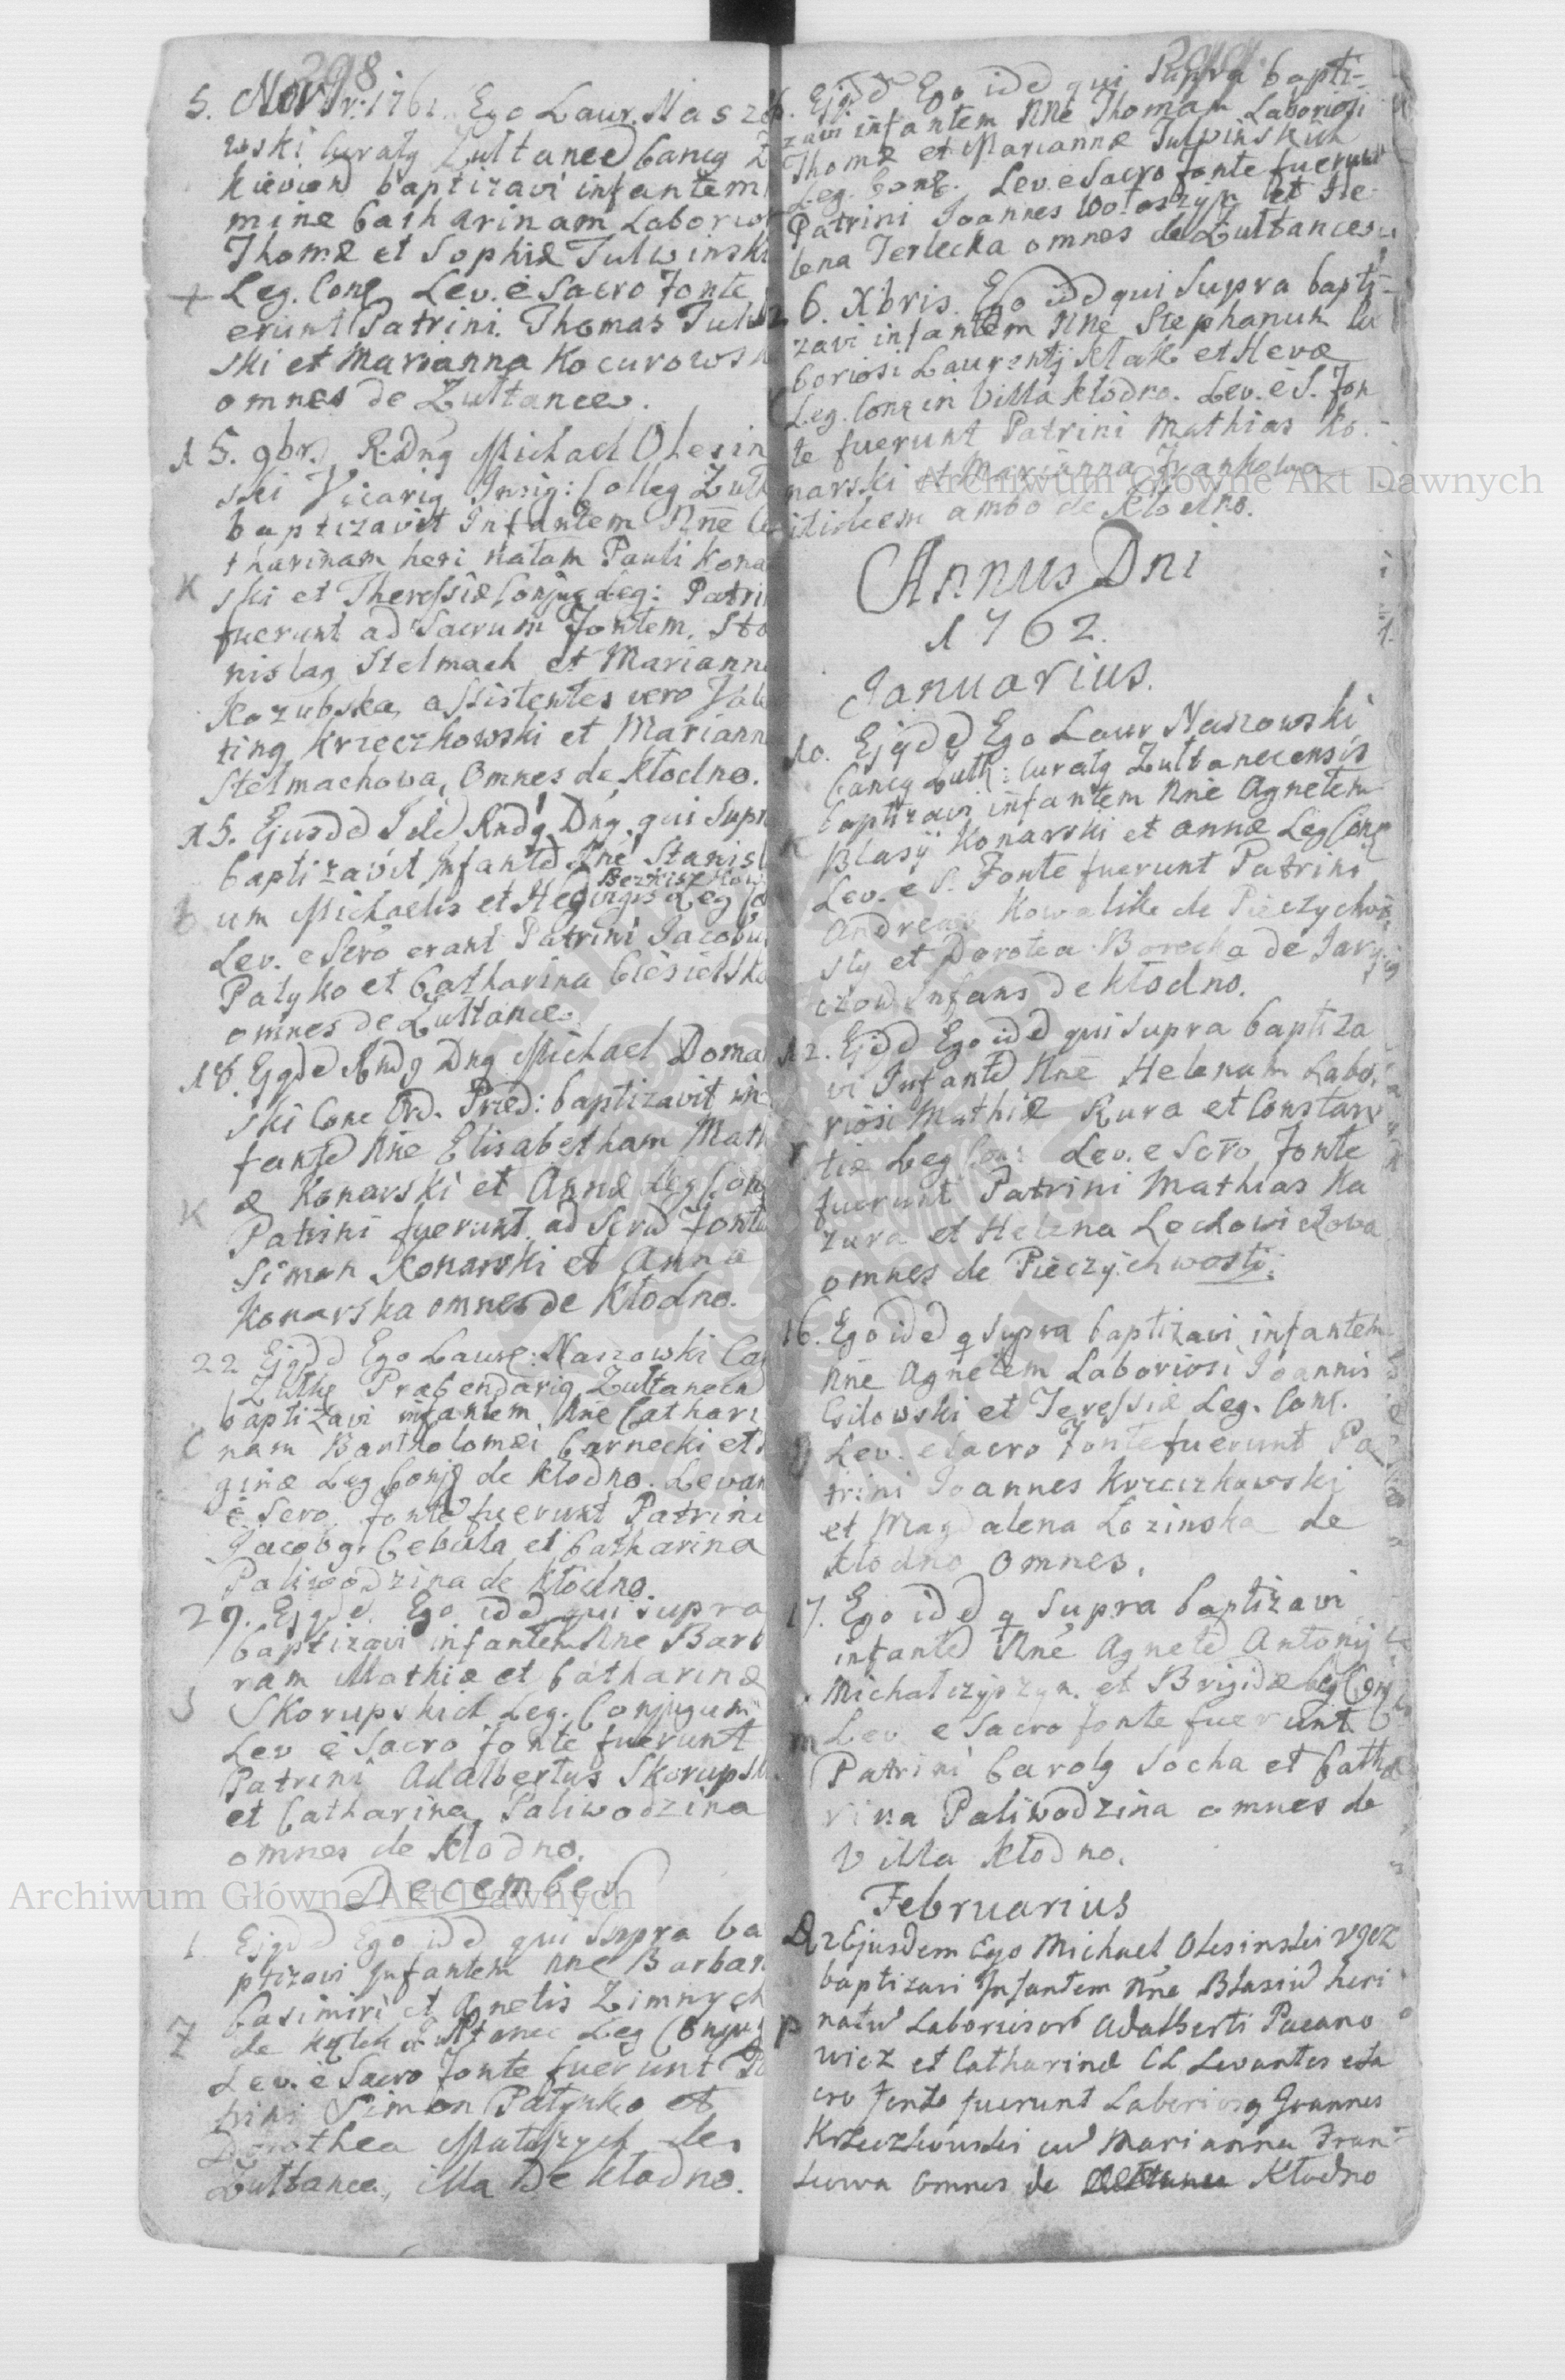 298
5. Novbr: 1761. Ego Laur. Naszko
wski Curatg Zultanced Cancg Z
kieviend baptizavi infantem
mine Catharinam Laborior
Thomæ et Sophiæ Tulwinski
+ Leg. Conę Lev. è Sacro Fonte
erunt Patrini. Thomas Tulw
ski et Marianna Kocurowsk
omnes de Zułtance.
15. 9br. R. Dng Michael Olesin
ski Vicarig Insig: Colleg Zułk
baptizavit Infantem Nnē Ca
tharinam heri natam Pauli Kona
K ski et Theressiæ Conjug Leg: Patri
fuerunt ad Sacrum Fontem, Sta
nislag Stelmach et Mariann
Kozubska, assistentes vero Vale
ting Krzeczkowski et Mariann
Stelmachowa, Omnes de Kłodno.
15. Ejusdd Idd Rndg Dng qui supr
baptizavit Infantd Nnē Stanisl
Bezkiszkow
B um Michaelis et Hedvigis Leg Co
Lev. e Scro erant Patrini Jacobu
Patyko et Catharina Ciesielsk
omnes de Zułtance
18. Ejgdd Rndg Dng Michael Doma
ski Conc Ord. Præd: baptizavit in
fantd Nnē Elisabetham Math
K æ Konarski et Annæ Leg Con
Patrini fuerunt ad Scrd Fontd
Simon Konarski et Anna
Konarska omnes de Kłodno.
22 Ejgdd Ego Laure: Naszowski Ca
Zułke Præbendarig Zułtanecn
baptizavi infantem Nnē Cathari
C nam Bartholomæi Carnecki et
ginæ Leg Conjg de Kłodno. Levan
è Scro. fonte fuerunt Patrini
Jacobg. Cebula et Catharina
Paliwodzina de Kłodno.
29. Ejgdd. Ego idd qui supra
baptizavi infantem Nnē Barb
ram Mathiæ et Catharinæ
S Skorupskich Leg. Conjugum
Lev è Sacro fonte fuerunt
Patrini Adalbertus Skorupsk
et Catharina Paliwodzina
omnes de Kłodno.
December
1 Ejgdd Ego idd qui supra ba
ptizavi Infantem Nnē Barbar
Casimiri et Agnetis Zimnych
Z de Leg Conjug
Lev. è Sacro fonte fuerunt Pa
trini Simon Patyko et
Dorothea de
Zułtance, illa De Kłodno.
Ejgdd Ego idd qui supra bapti-
zavi infantem Nnē Thomam Laboriosi
Thomæ et Mariannæ Tulwinskich
Leg. Conę. Lev. e Sacro fonte fuerunt
Patrini Joannes Wołoszyn et He
lena Terlecka omnes de Zułtance
6. Xbris. Ego idd qui supra bapti-
zavi infantem Nnē Stephanum La
boriosi Laurentij Kłak et Hevæ
Leg. Conę in Villa Kłodno. Lev. è S. Fon
te fuerunt Patrini Mathias Ko-
narski et Marianna Frankowa
itidem ambo de Kłodno.
Annus Dni
1762.
Januarius.
10. Ejgdd Ego Laur Naszowski
Cancg Zułk: Curatg Zultanecensis
baptizavi infantem Nnē Agnetem
K Blasij Konarski et Annæ Leg Conę
Lev. e S. Fonte fuerunt Patrini
Andreas Kowalik de Pieczychwo
sty et Dorotea Borecka de Jary
czow Infans de Kłodno.
12. Ejdd Ego idd qui supra baptiza
vi Infantd Nnē Helenam Labo,
riosi Mathiæ Kura et Constan
tiæ Leg Con: Lev. e Scro Fonte
fuerunt Patrini Mathias Ka
zura et Helena Lechowiczowa
omnes de Pieczychwosty.
16. Ego idd q supra baptizavi infantem
Nnē Agnetem Laboriosi Joannis
Gilowski et Teressiæ Leg. Conę.
g Lev. e Sacro Fonte fuerunt Pa
trini Joannes Krzeczkowski
et Magdalena Lozinska de
Kłodno Omnes.
17. Ego idd q supra baptizavi
infantd Nnē Agnetd Antonij
Michałczyszyn. et Brigidæ Leg Conj
m Lev. e Sacro fonte fuerunt
Patrini Carolg Socha et Catha
rina Paliwodzina omnes de
Villa Kłodno.
Februarius
2 Ejusdem Ego Michael Olesinski VGCZ
baptizavi Infantem Nnē Blasiū heri
p natū Laboriosorū Adalberti Pacano
wicz et Catharinæ CL Levantes e Sa
cro Fonte fuerunt Laboriosg Joannes
Krzeczkowski cū Marianna Fran-
kowa Omnes de Kłodno
Archiwum Główne Akt Dawnych
Archiwum Główne Akt Dawnych